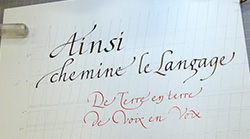 Ainsi
chemine le Langage
De Terre en terre
de Voix en Voix